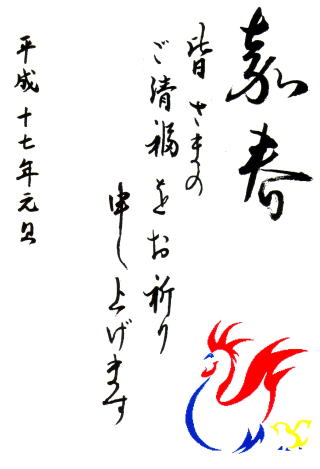 嘉春
皆さまの
ご清福をお祈り
申し上げます
平成十七年元旦